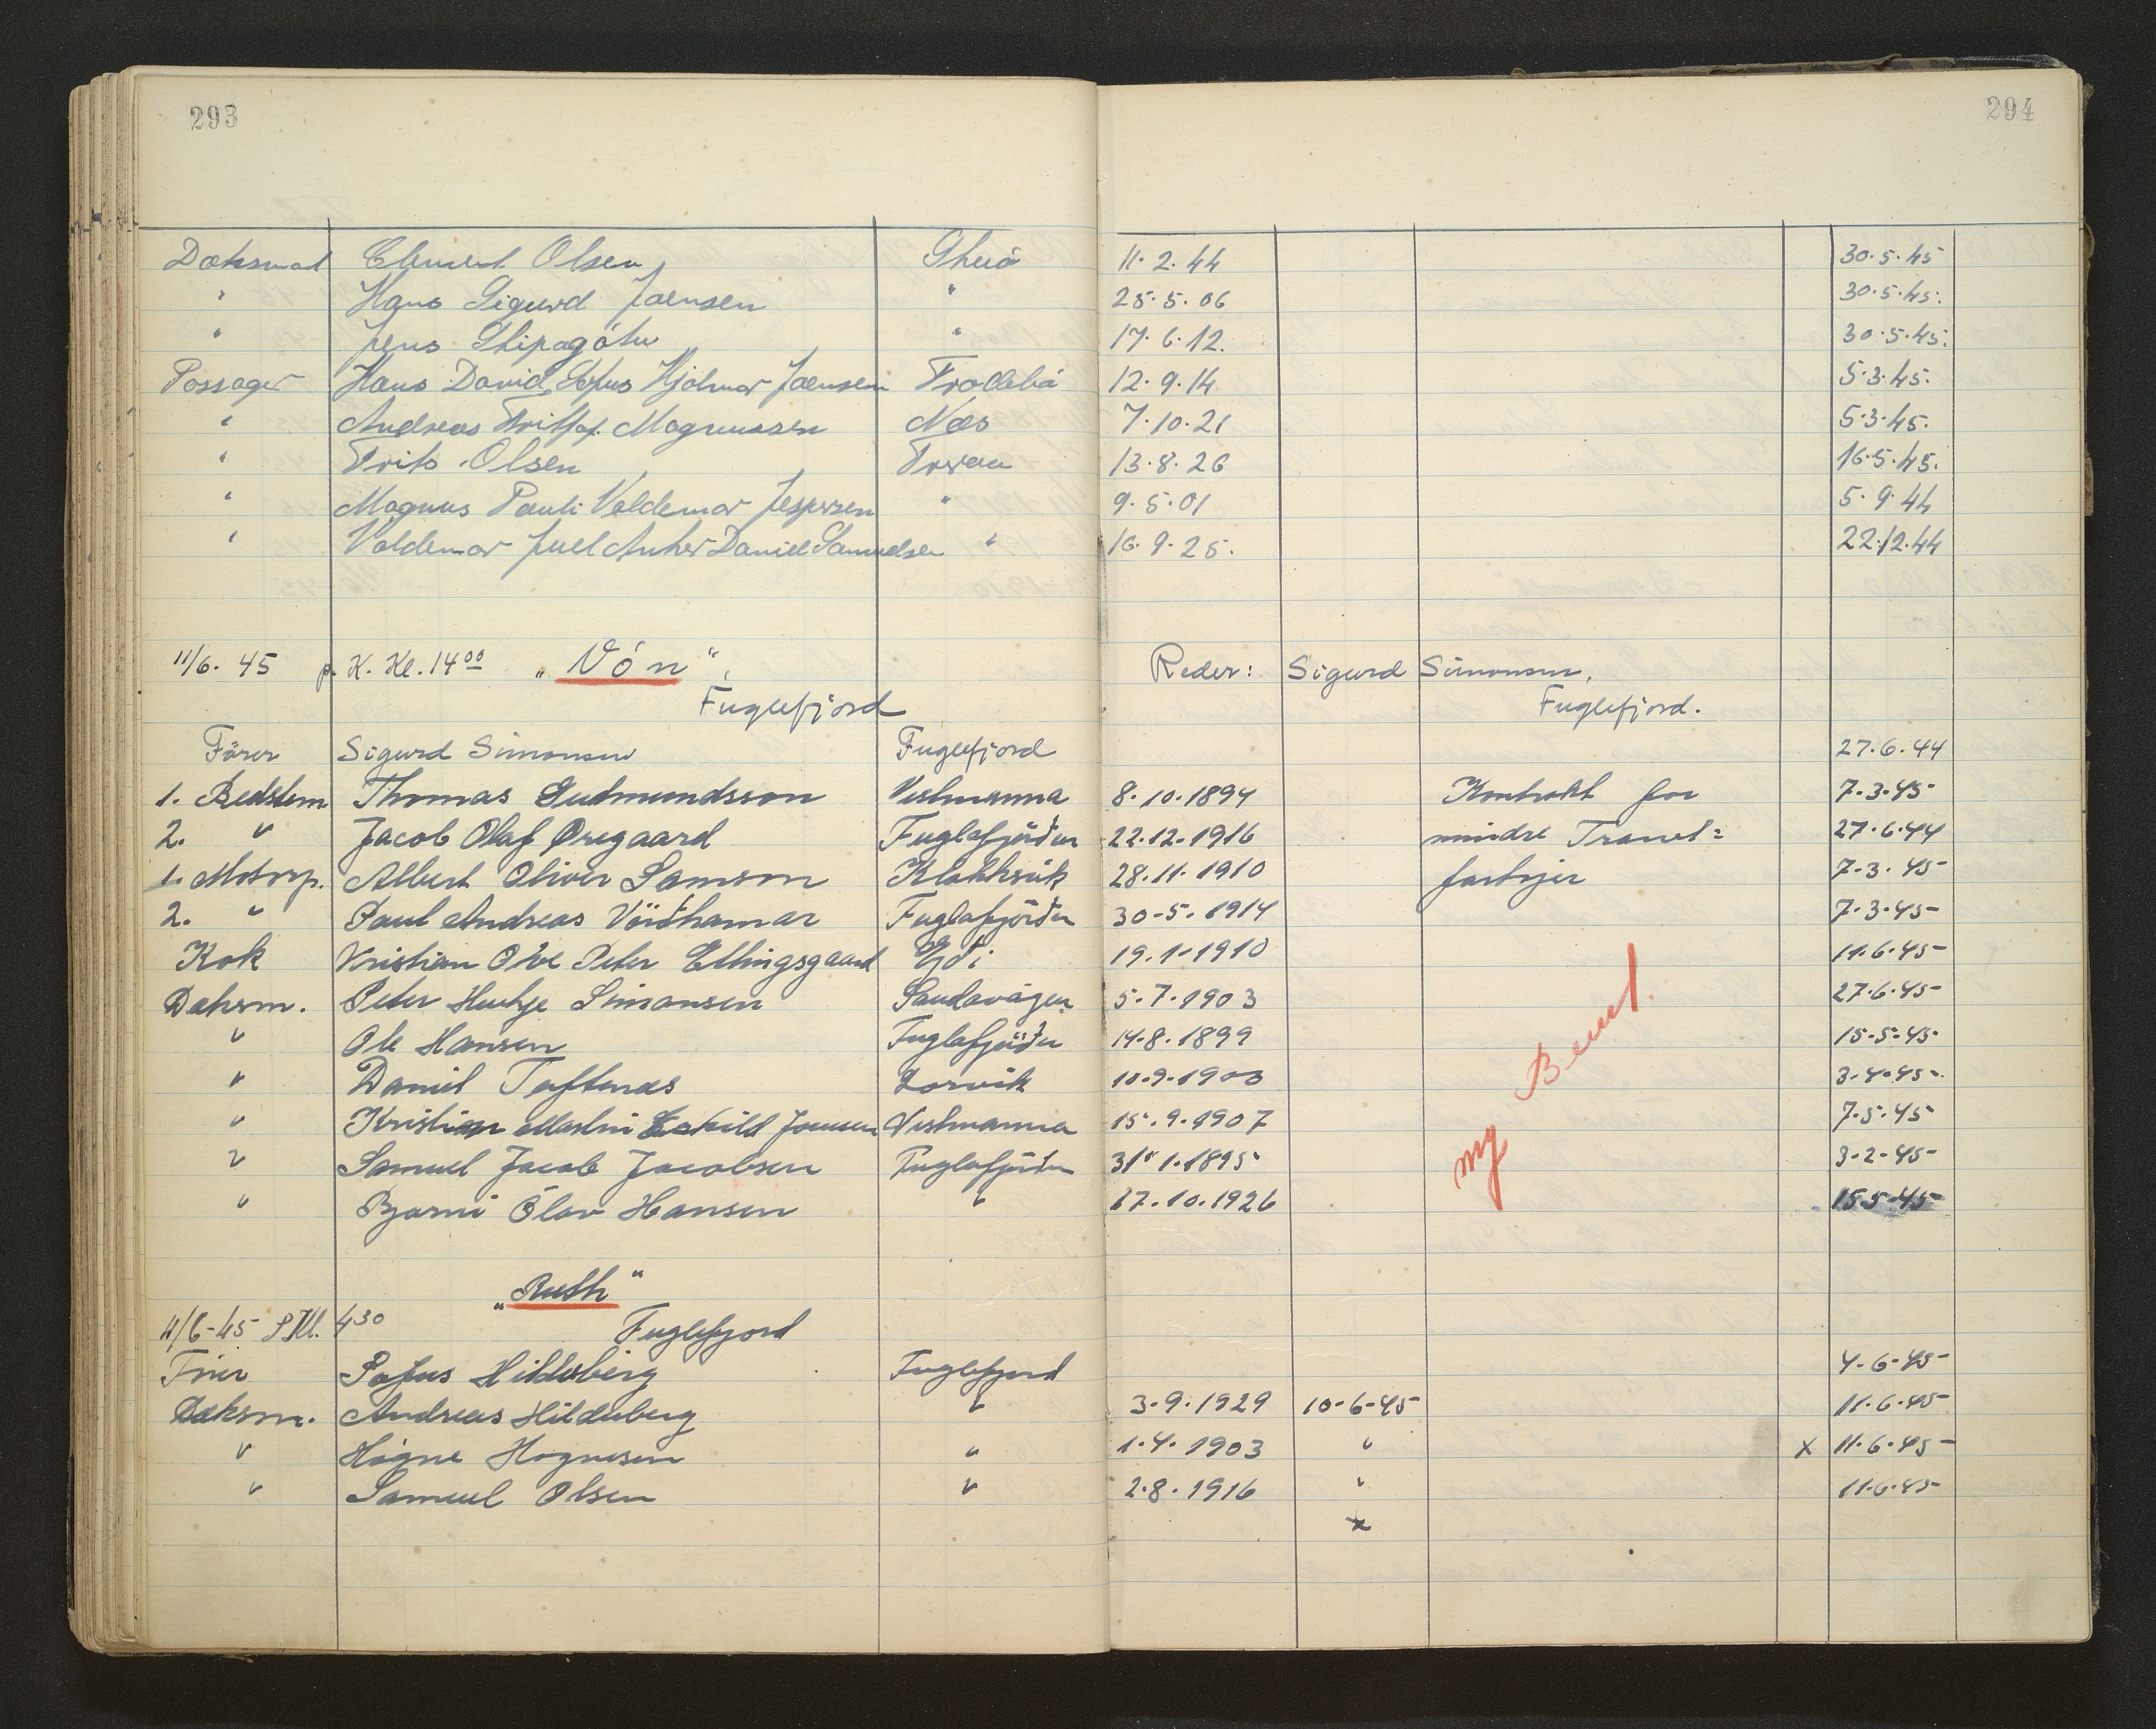 293
294
Dæksmand Clement Olsen Skuö 11.2.44 30.5.45
" Hans Sigurd Joensen " 25.5.06 30.5.45.
" Jens Skipagötu " 17.6.12. 30.5.45.
Passager Hans David Sofus Hjalmar Joensen 12.9.14 5.3.45.
" Andreas Magnussen Næs 7.10.21 5.3.45.
" Frits Olsen 13.8.26 16.5.45.
" Magnus Pauli Valdemar Jespersen " 9.5.01 5.9.44
" Valdemar Juel Anker Daniel Samuelsen " 16.9.25. 22.12.44
11/6. 45 p. K. Kl. 14⁰⁰ „Vón", Reder: Sigurd Simonsen,
Fuglefjord Fuglefjord.
Förer Sigurd Simonsen Fuglefjord 27.6.44
1. Bedstem Thomas Gudmundsson Vestmanna 8.10.1894 Kontrakt for 7-3-45-
2. " Jacob Olaf Øregaard Fuglafjörður 22.12.1916 mindre Trawl= 27.6.44
1. Motorp. Albert Oliver Samson Klakksvik 28.11.1910 fartøjer 7-3.45-
2. " Paul Andreas Vördhamar Fuglafjördur 30-5.1914 7-3-45-
Kok Kristian Ove Peter Ellingsgaard Ejdi 19.1-1910 11.6.45-
Daksm. Peter Simonsen Sandavágen 5.7.1903 27.6.45-
" Ole Hansen Fuglafjörður 14.8.1899 15-5-45-
" Daniel Toftenæs Lorvik 10.9.1903 3-4-45-
" Kristian Martin Eskild Joensen Vestmanna 15.9.1907 7-5.45-
" Samuel Jacob Jacobsen Fuglafjördur 31.1.1895 3-2-45-
" Bjarni Ólav Hansen " 17.10.1926 15.5-45-
ny Bem.
„Ruth"
11/6-45 P Kl. 4³⁰ Fuglefjord
Förer Sofus Hildisberg Fuglefjord 4-6-45-
Daksm. Andreas Hildisberg " 3-9.1929 10-6-45 11.6.45-
" Högne Hognesen " 1.4.1903 " x 11.6.45-
" Samuel Olsen " 2.8.1916 " 11.6.45-
x